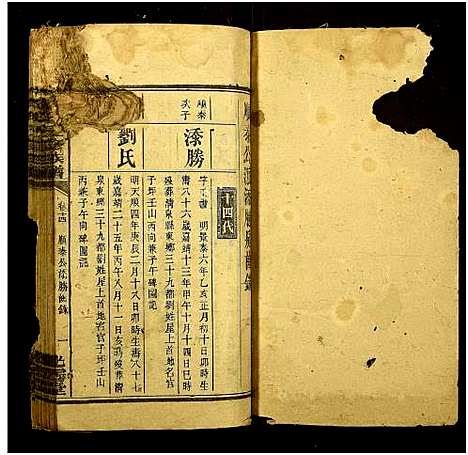 十四代
順泰
次子
添勝
明景泰六年乙亥正月初十日卯時生
壽八十六歲嘉靖十三年甲午十月十四日巳時
歿葬清泉縣東鄉三十九都劉姓屋上首地名官
子坪壬山丙向兼子午碑圖記
劉氏
明天順四年庚辰二月十八日卯時生壽八十七
歲嘉靖二十五年丙午八月十一日亥時歿葬清
泉東鄉三十九都劉姓屋上首地名官子坪壬山
丙兼子午向碑圖記
卷十四
順泰公添勝齒錄
一